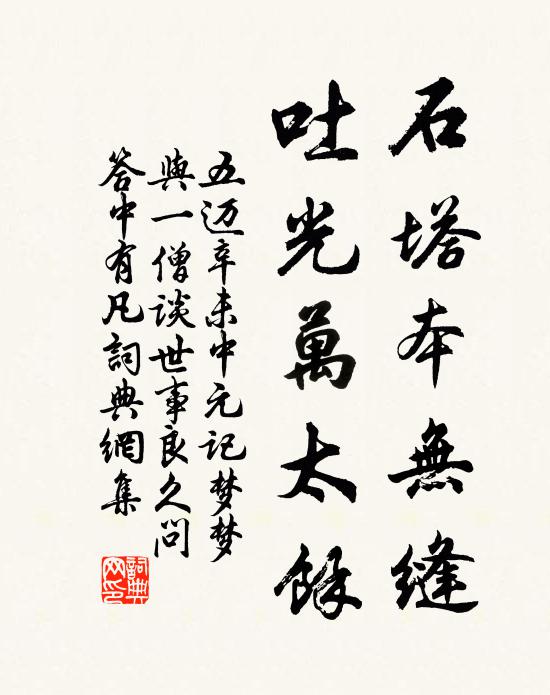 石塔本無縫
吐光萬太餘
五迈辛未中元记梦梦
與一僧谈世事良久问
答中有凡詞典網集
詞典
网印